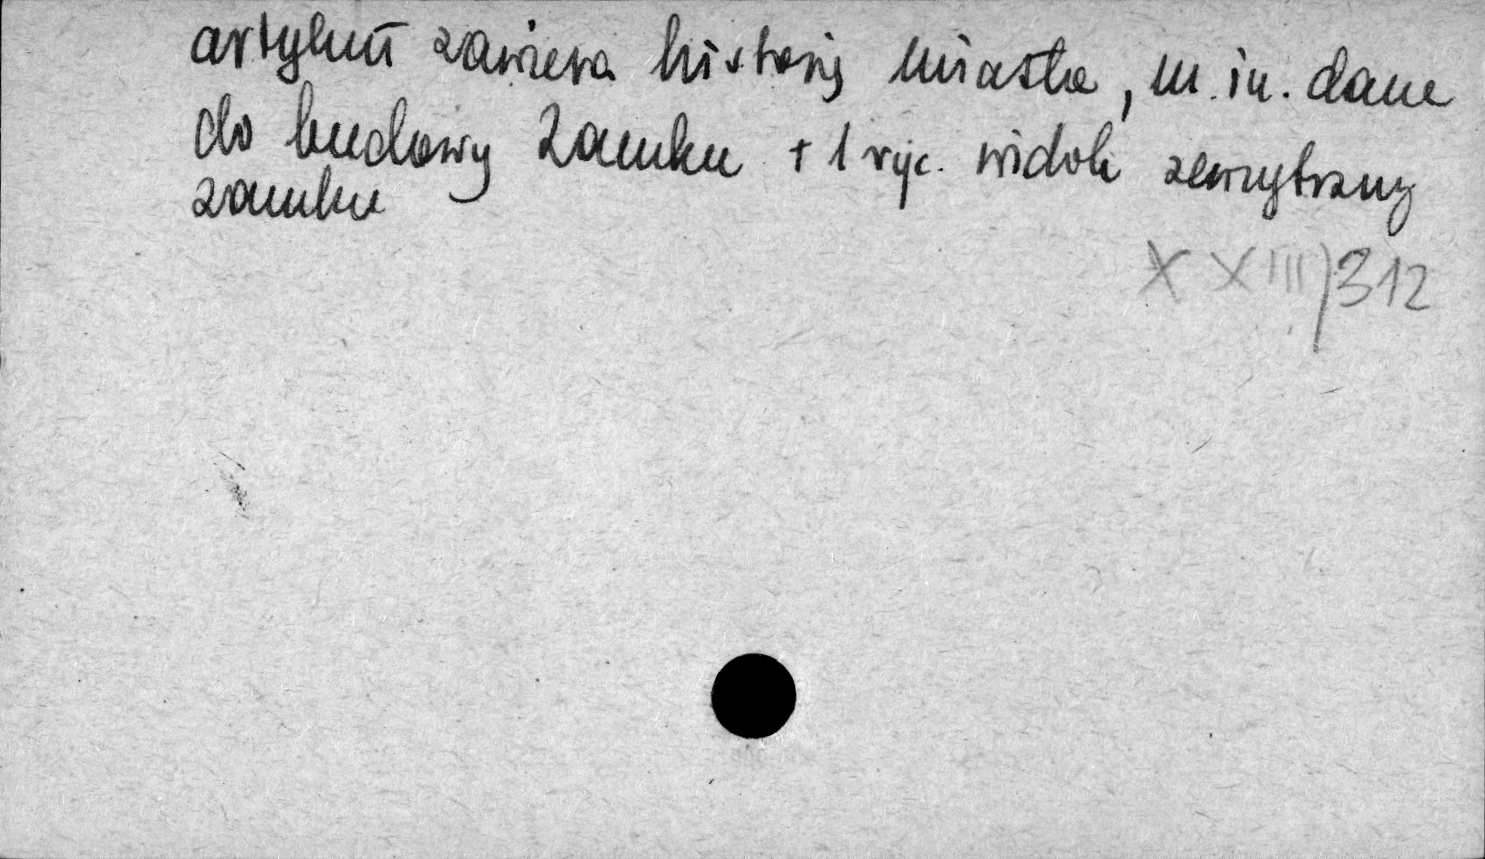 artykuł zawiera historię miasta, m.in. dane
do budowy zamku + 1 ryc. widok zewnętrzny
zamku
XXIII/312